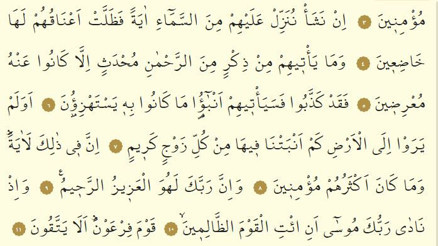 مُؤْمِنِينَ ﴿٣﴾ اِنْ نَشَأْ نُنَزِّلْ عَلَيْهِمْ مِنَ السَّمَٓاءِ اٰيَةً فَظَلَّتْ اَعْنَاقُهُمْ لَهَا
خَاضِعٖينَ ﴿٤﴾ وَمَا يَأْتٖيهِمْ مِنْ ذِكْرٍ مِنَ الرَّحْمٰنِ مُحْدَثٍ اِلَّا كَانُوا عَنْهُ
مُعْرِضٖينَ ﴿٥﴾ فَقَدْ كَذَّبُوا فَسَيَأْتٖيهِمْ اَنْبٰٓؤُ۬ا مَا كَانُوا بِهٖ يَسْتَهْزِؤُ۫نَ ﴿٦﴾ اَوَلَمْ
يَرَوْا اِلَى الْاَرْضِ كَمْ اَنْبَتْنَا فٖيهَا مِنْ كُلِّ زَوْجٍ كَرٖيمٍ ﴿٧﴾ اِنَّ فٖى ذٰلِكَ لَاٰيَةًۜ
وَمَا كَانَ اَكْثَرُهُمْ مُؤْمِنٖينَ ﴿٨﴾ وَاِنَّ رَبَّكَ لَهُوَ الْعَزٖيزُ الرَّحٖيمُ۟ ﴿٩﴾ وَاِذْ
نَادٰى رَبُّكَ مُوسٰٓى اَنِ ائْتِ الْقَوْمَ الظَّالِمٖينَۙ ﴿١٠﴾ قَوْمَ فِرْعَوْنَۜ اَلَا يَتَّقُونَ ﴿١١﴾